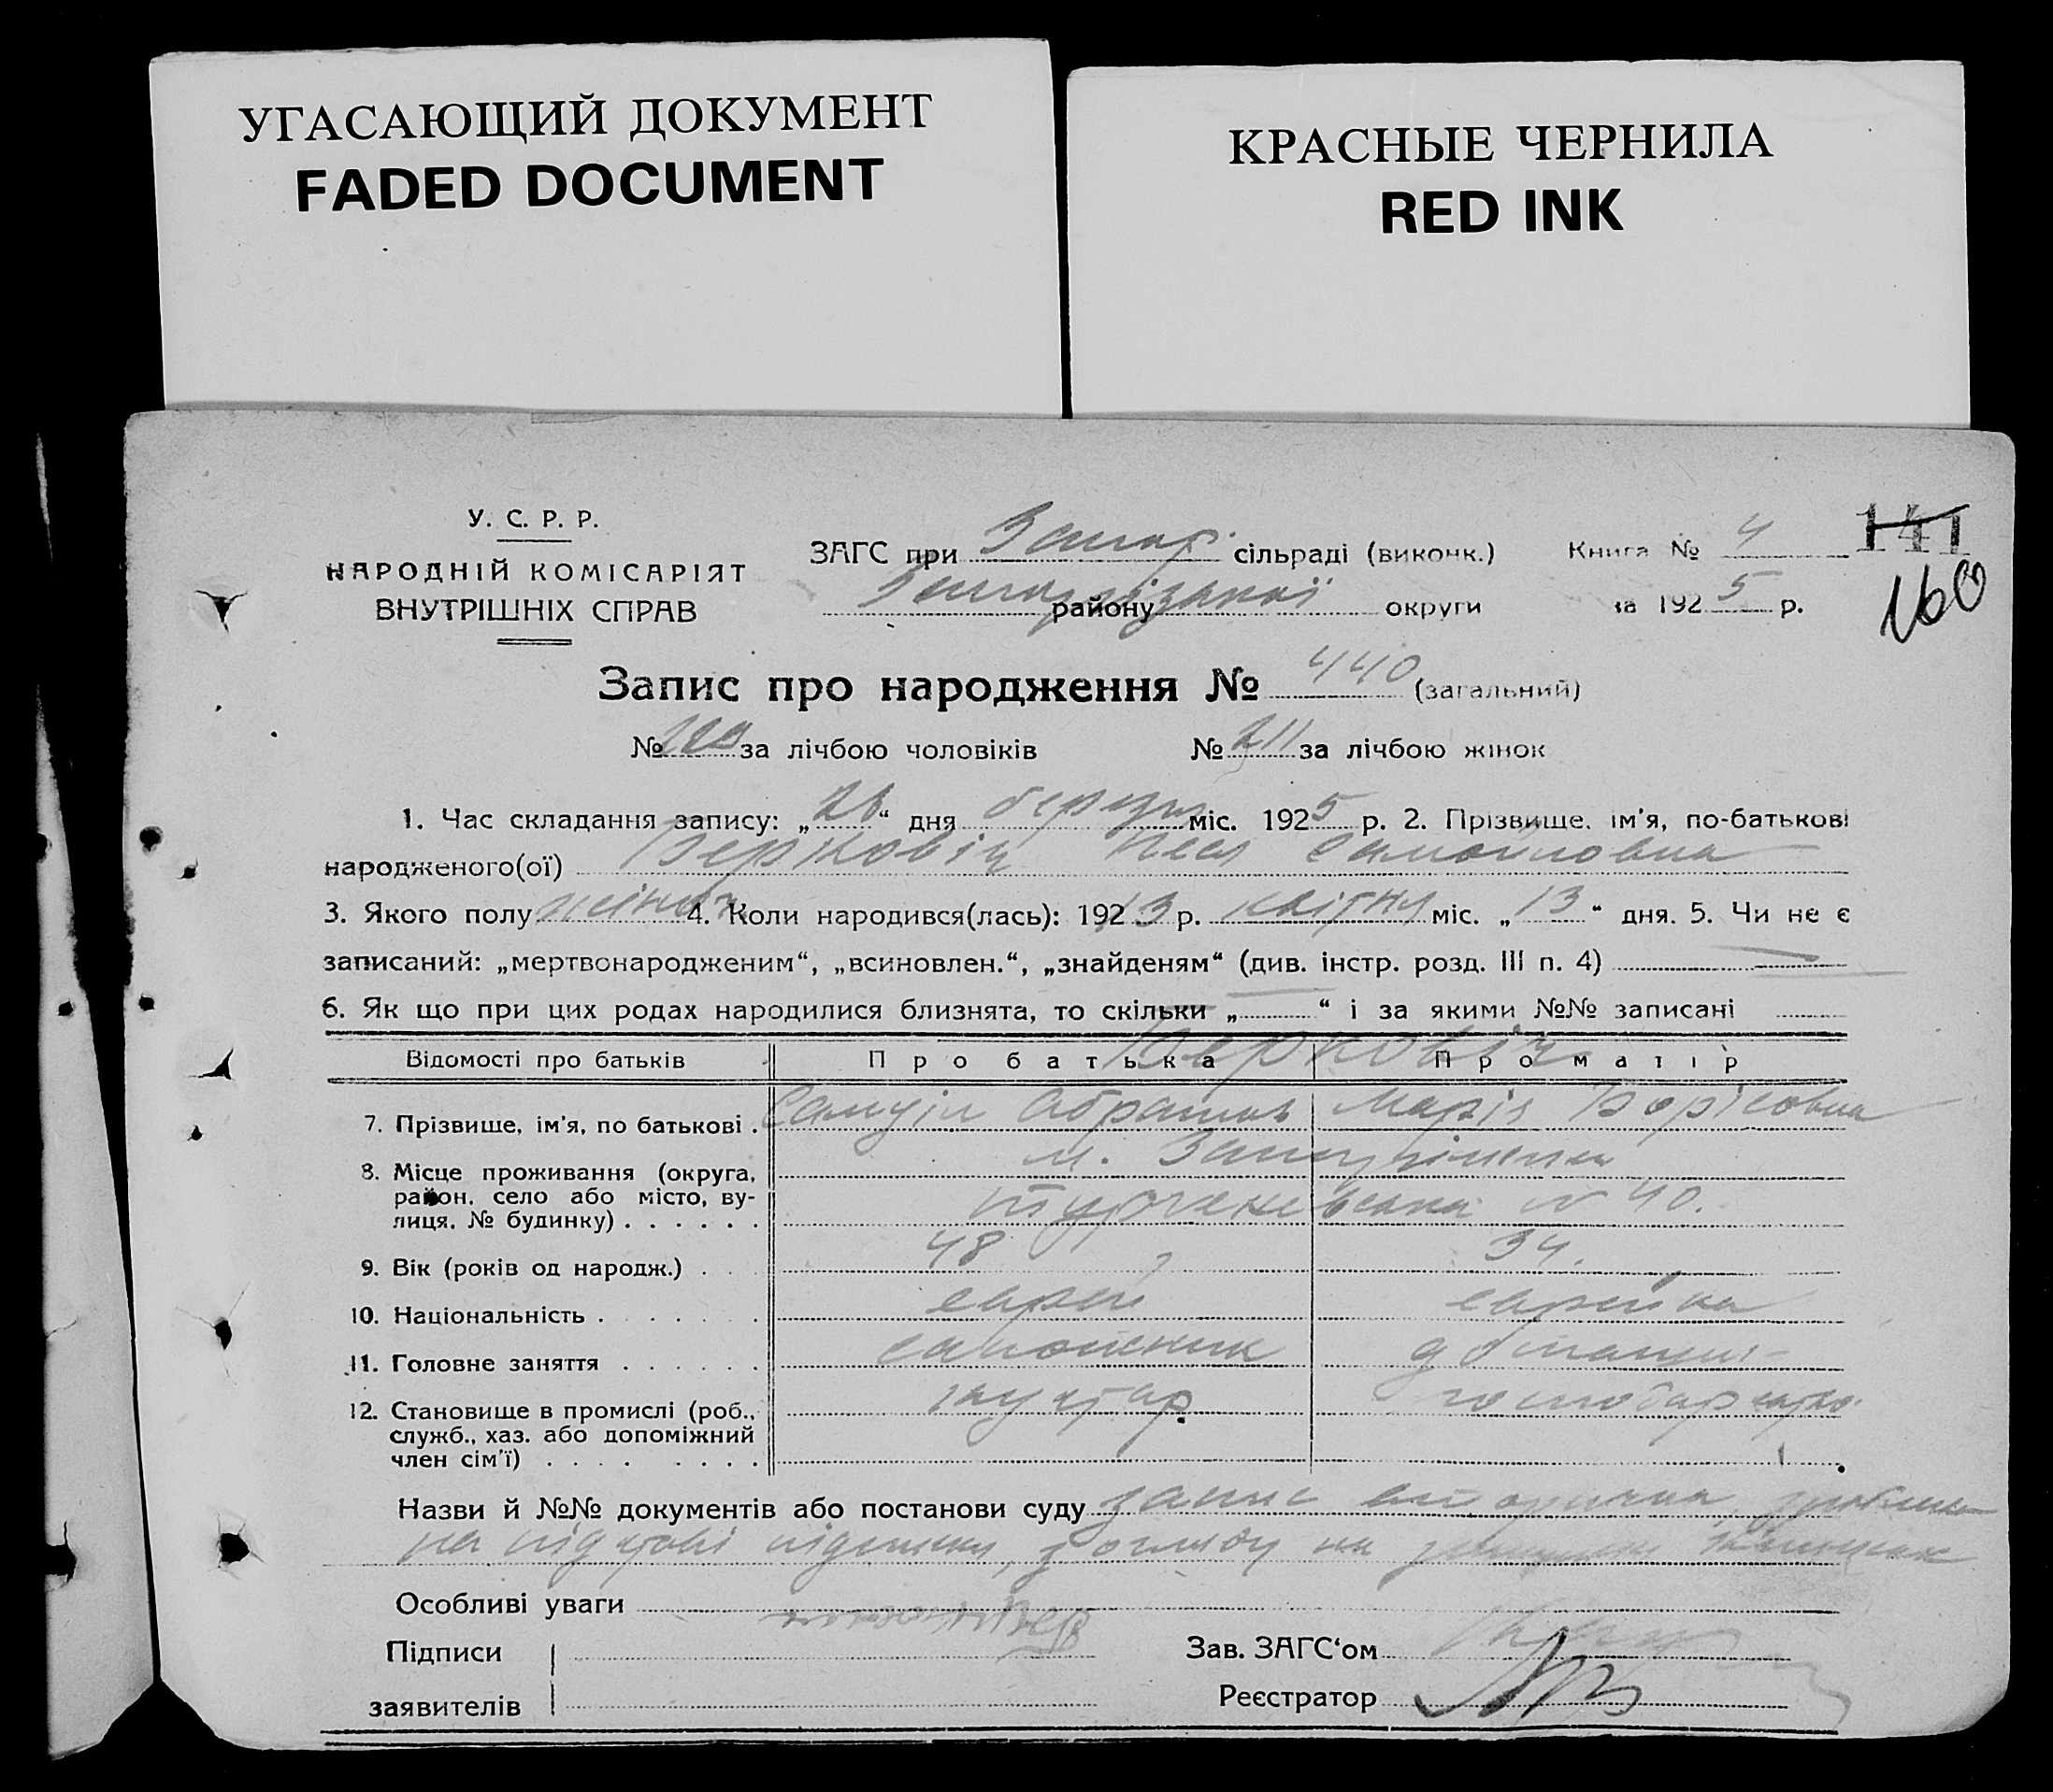 УГАСАЮЩИЙ ДОКУМЕНТ
FADED DOCUMENT
КРАСНЫЕ ЧЕРНИЛА
RED INK
У. С. Р. Р.
НАРОДНІЙ КОМІСАРІЯТ
ВНУТРІШНІХ СПРАВ
ЗАГС при сільраді (виконк.)
району округи
Книга № 4
за 1925 р.
141
160
Запис про народження № 440 (загальний)
№ за лічбою чоловіків № 211 за лічбою жінок
1. Час складання запису: „26“ дня міс. 1925 р. 2. Прізвище, ім'я, по-батькові
народженого(ої) Берковіч Самойловна
3. Якого полу жіноч 4. Коли народився(лась): 192 13 р. квітня міс. „13“ дня. 5. Чи не є
записаний: „мертвонародженим“, „всиновлен.“, „знайденям“ (див. інстр. розд. III п. 4)
6. Як що при цих родах народилися близнята, то скільки „ “ і за якими №№ записані
Відомості про батьків Про батька Про матір
Берковіч
7. Прізвище, ім'я, по батькові . Самуіл Абрамов Марія Борісовна
8. Місце проживання (округа, район, село або місто, вулиця, № будинку) . . . . . . м.
№ 40.
9. Вік (років од народж.) . . . 48 34.
10. Національність . . . . . . . еврей еврейка
11. Головне заняття . . . . . . сапожник домашн-
12. Становище в промислі (роб., служб., хаз. або допоміжний член сім'ї) . . . . . . . . кустар господарство
Назви й №№ документів або постанови суду запис вторична, зроблена
на підставі підписки, з огляду на
Особливі уваги
Підписи
заявителів
Зав. ЗАГС'ом
Реєстратор